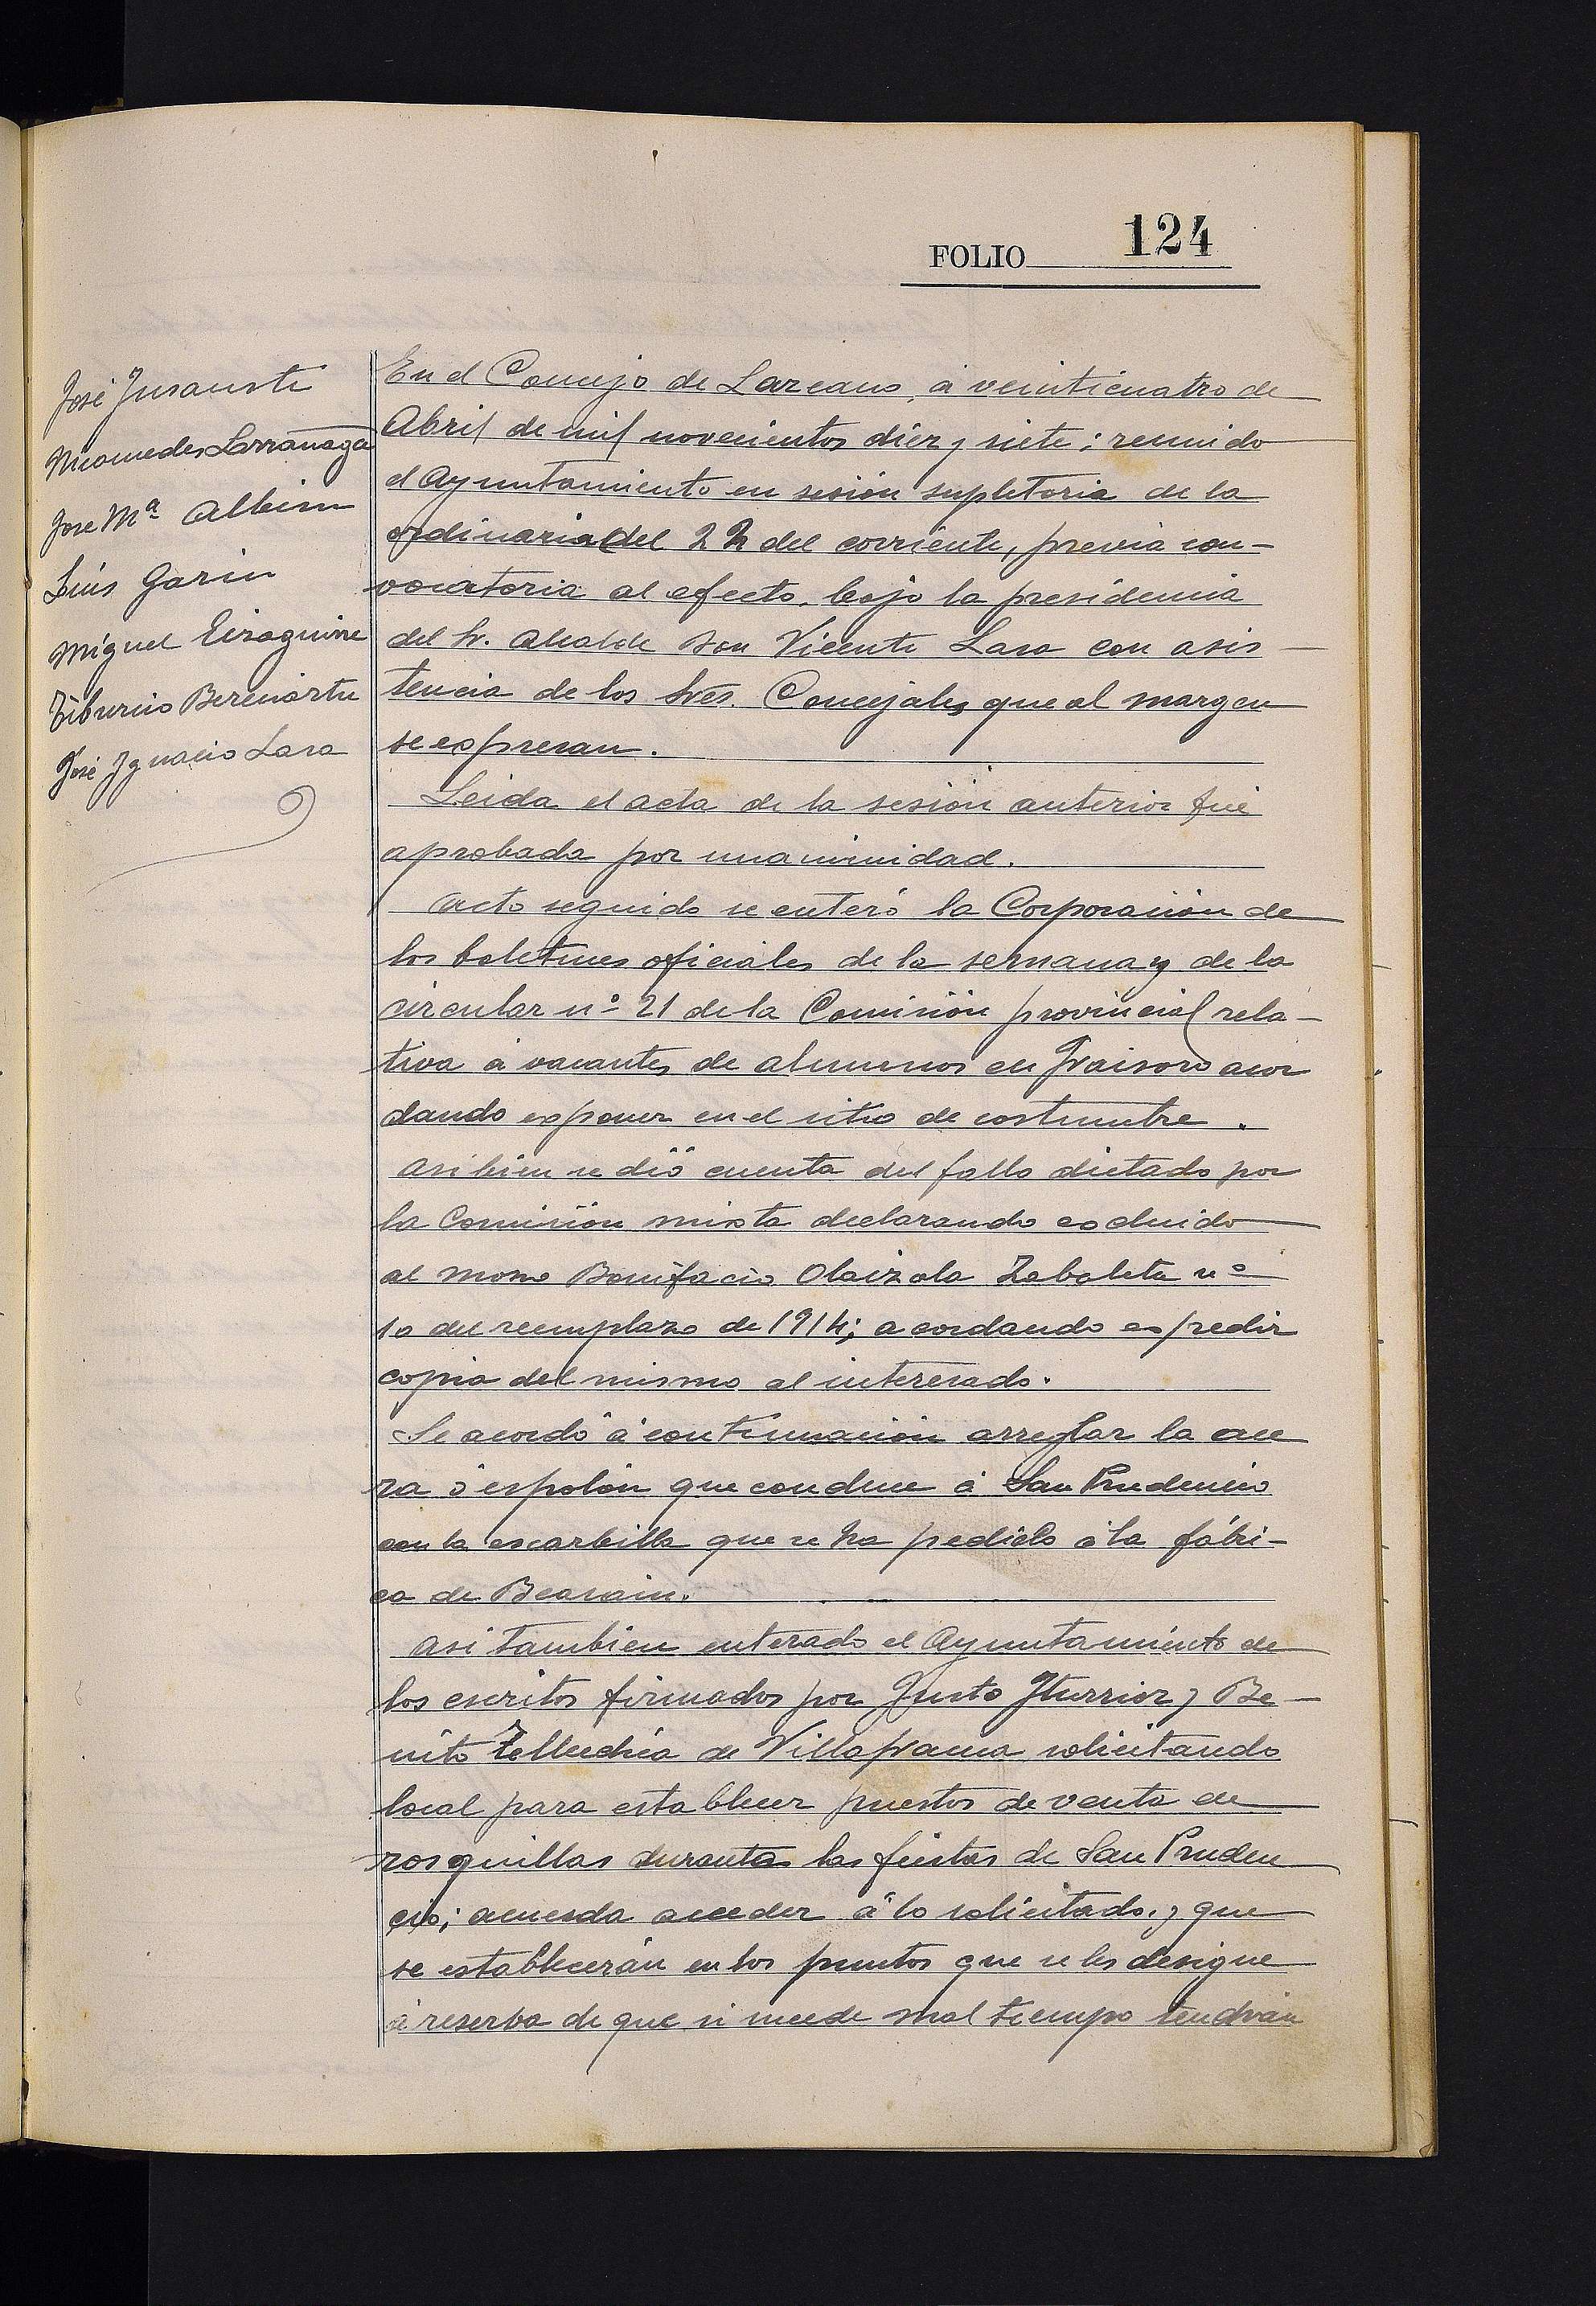 FOLIO 124
José Insausti
Nicomedes Larrañaga
José Mª Albisu
Luis Garin
Miguel Eizaguirre
Tiburcio Bereciartu
José Ignacio Lasa
En el Concejo de Lazcano, á veinticuatro de
Abril de mil novecientos diez y siete; reunido
el Ayuntamiento en sesión supletoria de la
ordinaria del 22 del corriente, previa con-
vocatoria al efecto, bajo la presidencia
del Sr. Alcalde Don Vicente Lasa con asis-
tencia de los Sres. Concejales que al margen
se expresan.
Leida el acta de la sesión anterior fué
aprobada por unanimidad.
Acto seguido se enteró la Corporación de
los boletines oficiales de la semana y de la
circular nº 21 de la Comisión provincial rela-
tiva á vacantes de alumnos en Fraisoro acor
dando exponer en el sitio de costumbre.
Asi bien se dió cuenta del fallo dictado por
la Comisión mixta declarando excluido
al mozo Bonifacio Olaizola Zabaleta nº
10 del reemplazo de 1914; acordando expedir
copia del mismo al interesado.
Se acordó á continuación arreglar la ace
ra ó espolón que conduce á San Prudencio
con la escarbilla que se ha pedido á la fábri-
ca de Beasain.
Asi tambien enterado el Ayuntamiento de
los escritos firmados por Justo Iturrioz y Be-
nito Tellechea de Villafranca solicitando
local para establecer puestos de venta de
rosquillas durante las fiestas de San Pruden
cio; acuerda acceder á lo solicitado y que
se establecerán en los puntos que se les designe
á reserba de que si sucede mal tiempo tendrán